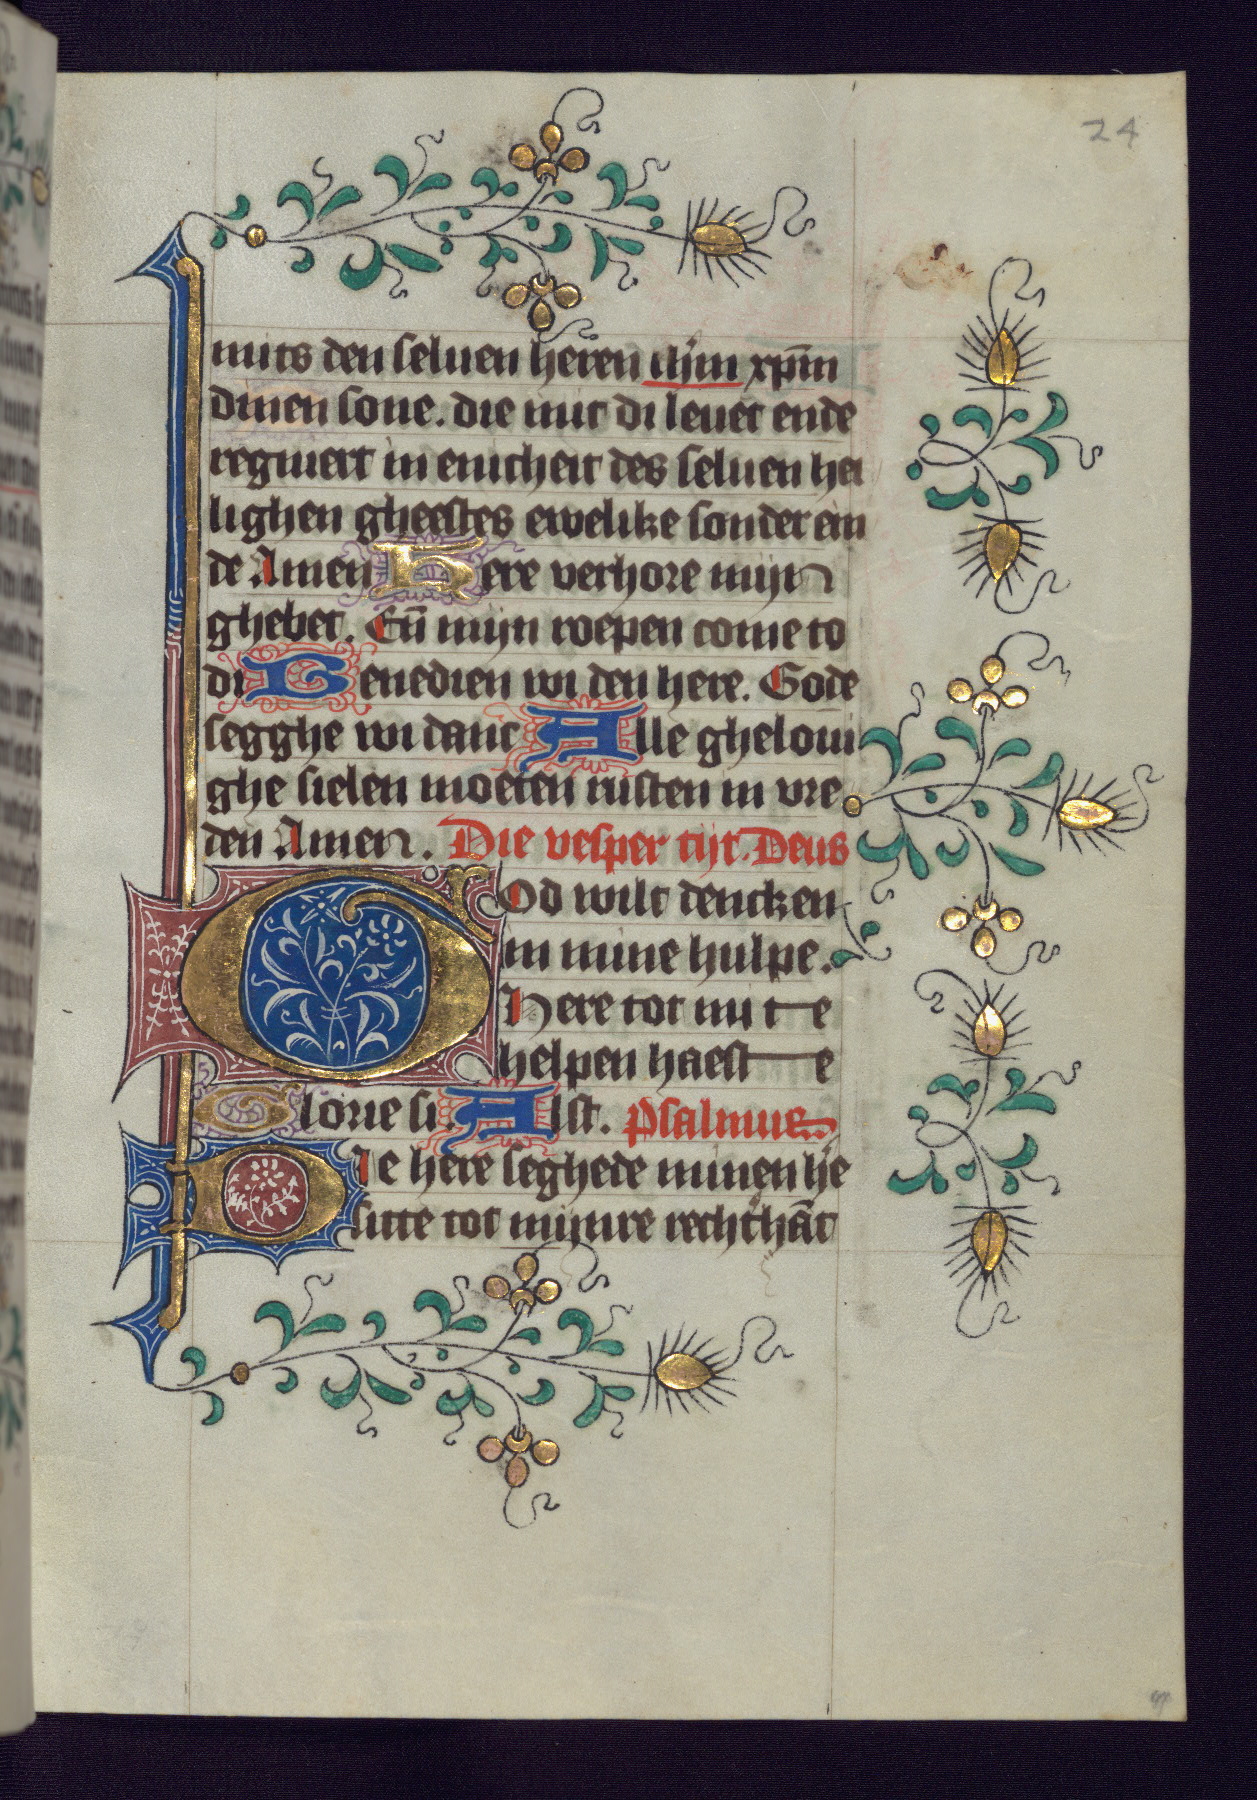 24
mits den seluen heren ihm xpm
dinen sone. die mit di leuet ende
regniert in enicheit des seluen hei
lighen gheestes ewelike sonder ein
de Amen Here verhore mijn
ghebet. En̄ mijn roepen come to
di Benedien wi den here. Gode
segghe wi danc Alle gheloui
ghe sielen moeten rusten in vre
den Amen. Die vesper tijt. Deus
God wilt dencken
in mine hulpe.
Here tot mi te
helpen haeste
Glorie si. Alst. Psalmus
Die here seghede minen he
sitte tot mijnre rechthāt